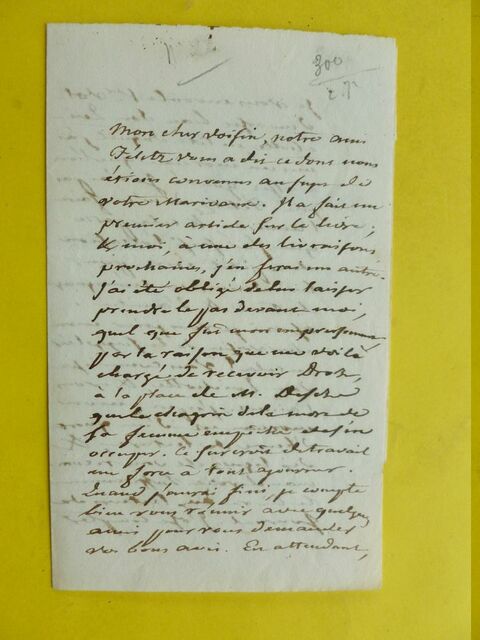 300
Mon cher voisin, notre ami
Féletz vous a dit ce dont nous
étions convenus au sujet de
votre Marivaux. Il a fait un
premier article sur le livre,
& moi, à une des livraisons
prochaines, j'en ferai un autre.
J'ai été obligé de lui laisser
prendre le pas devant moi,
quel que fût mon empressement
par la raison que me voilà
chargé de recevoir Droz,
à la place de M.
que le chagrin de la mort de
sa femme empêche de s'en
occuper. Ce surcroit de travail
me force à tout ajourner.
Quand j'aurai fini je compte
bien vous réunir avec quelques
amis pour vous demander
vos bons avis. En attendant,